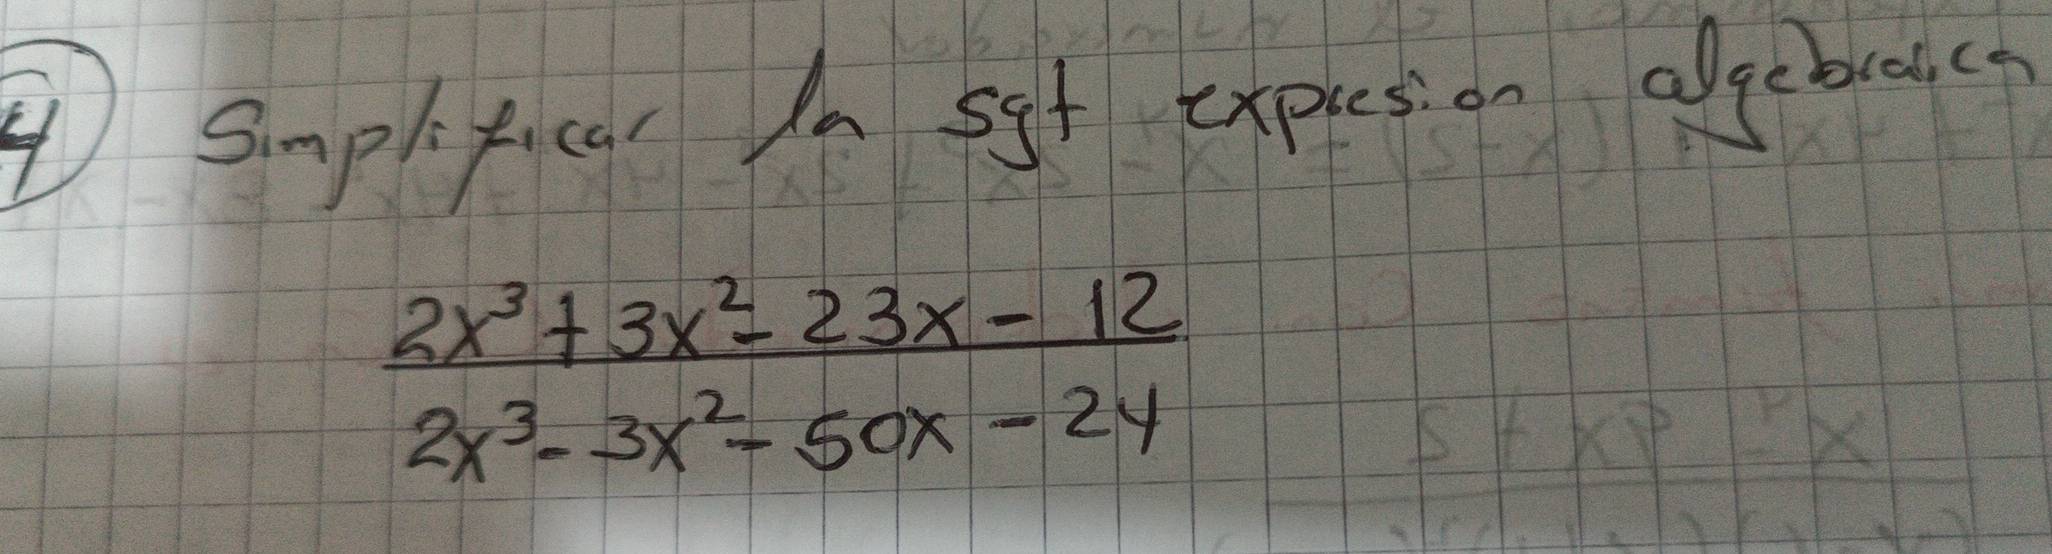 4) Simplificar la sgt expresion algebraica
2x³ + 3x² - 23x - 12
2x³ - 3x² - 50x - 24